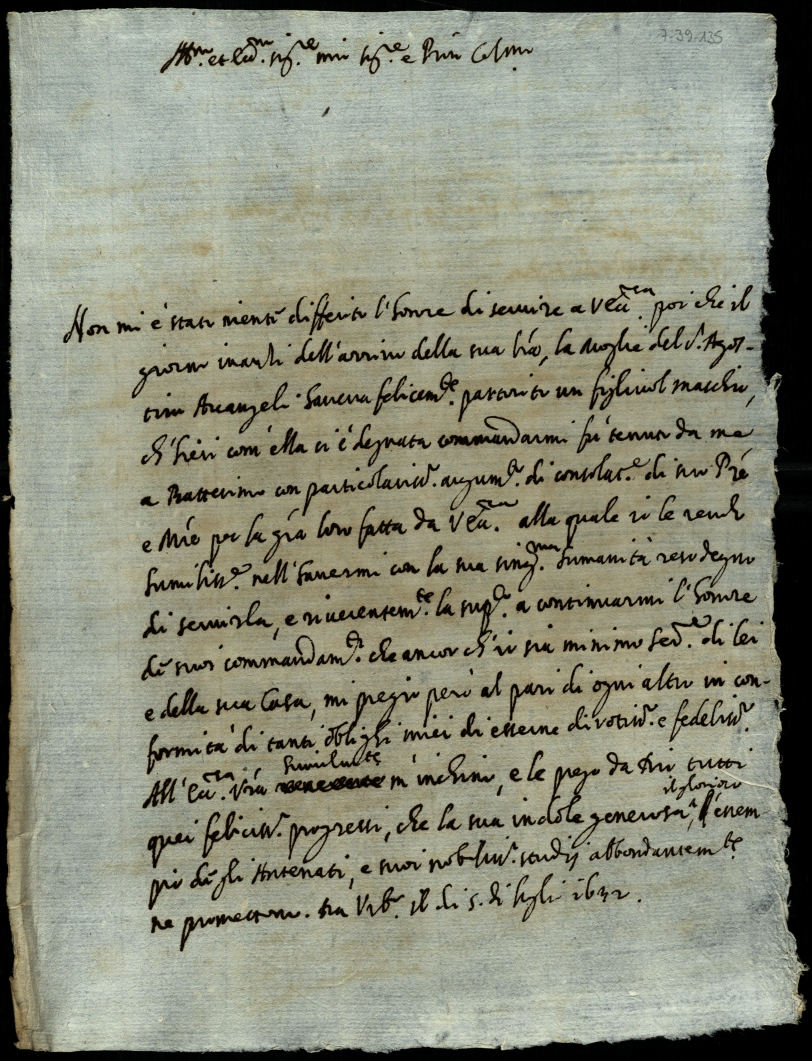 7-39-135
Ill.mo et Ecc.mo sig.re mio sig.re e Prōn Col.mo
Non mi è stato niente differito l'honore di servire a V Ecc.za poi che il
giorno inanzi dell'arrivo della sua lrā, la moglie del S.r Agos-
tino Arcangeli haveva felicem.te partorito un figliuol maschio,
ch'hieri com'ella si è degnata commandarmi fù tenuto da me
a Battesimo con particolariss.o argum.to di consolat.e di suo Prē
e Mrē per la grā loro fatta da V Ecc.za alla quale io le rendo
humiliss.e nell'havermi con la sua sing.ma humanità reso degno
di servirla, e riverentem.te la sup.co a continuarmi l'honore
de suoi commandam.ti che ancor ch'io sia minimo ser.re di lei
e della sua Casa, mi pregio però al pari di ogni altro in con-
formità di tanti oblighi miei di esserne divotiss.o e fedeliss.o
All'Ecc.za Vrā humilm.te m'inchino, e le prego da Dio tutti
quei feliciss.i progressi, che la sua indole generosa, il glorioso essem
pio degli Antenati, e suoi nobiliss.i studij abbondantem.te
ne promettono. Da Urb.o il dì 5. di lugli 1632.